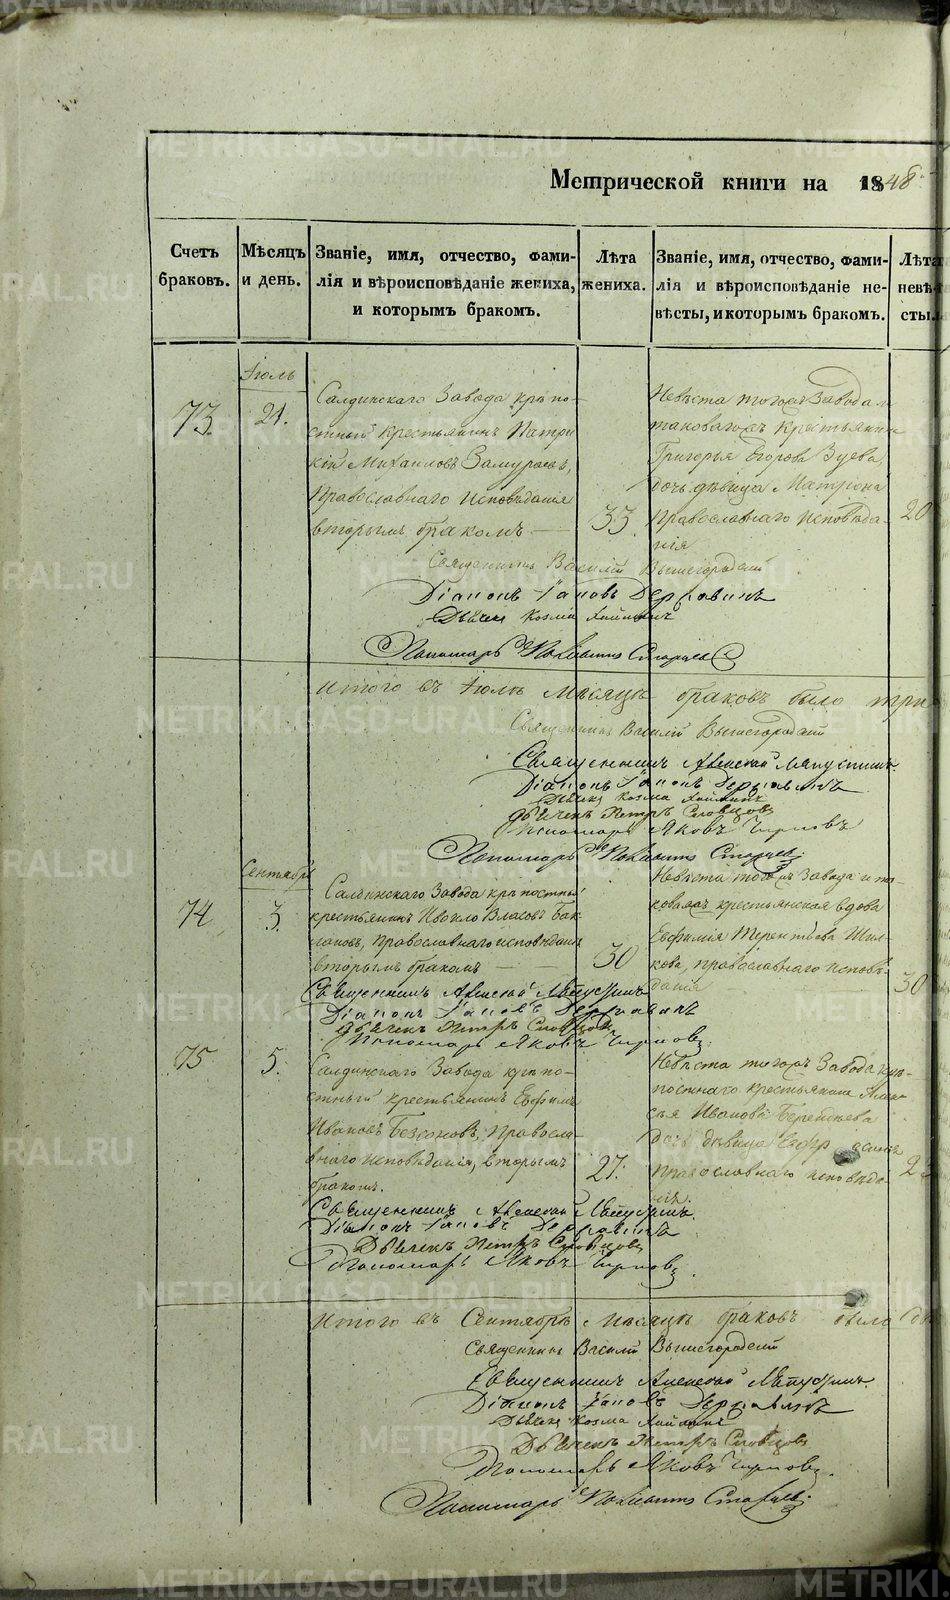 Метрической книги на 1848
Счетъ браковъ.
Мѣсяцъ и день.
Званіе, имя, отчество, фами-
лія и вѣроисповѣданіе жениха,
и которымъ бракомъ.
Лѣта
жениха.
Званіе, имя, отчество, фами-
лія и вѣроисповѣданіе не-
вѣсты, и которымъ бракомъ.
Лѣта
невѣ-
сты.
Іюль
73.
21.
Салдинскаго Завода крѣпо-
стный крестьянинъ Патри
кій Михаиловъ Замураевъ,
Православнаго Исповѣданія
вторымъ бракомъ
33
Невѣста тогожъ Завода и
таковагожъ крестьянина
Григорья Егорова Зуева
дочь дѣвица Матрона
Православнаго Исповѣда-
нія
20
Священникъ Василій Вышегородскій
Діаконъ Іаковъ Державинъ
Дьячекъ Козма
Пономарь
Итого въ Іюлѣ мѣсяцѣ браковъ было три
Священникъ Василій Вышегородскій
Священникъ Алексѣй
Діаконъ Іаковъ Державинъ
Дьячекъ Козма
Дьячекъ Петръ Словцовъ
Пономарь Яковъ
Пономарь
Сентябрь
74
3.
Салдинскаго Завода крѣпостный
крестьянинъ Власовъ
православнаго исповѣданія
вторымъ бракомъ
30
Невѣста тогожъ Завода и та-
коваяжъ крестьянская вдова
Евфимія Терентьева
православнаго исповѣ-
данія
30
Священникъ Алексѣй
Діаконъ Іаковъ Державинъ
Дьячекъ Петръ Словцовъ
Пономарь Яковъ
75
5.
Салдинскаго Завода крѣпо-
стный крестьянинъ Евфимъ
Ивановъ Безсоновъ, Правосла-
внаго исповѣданія, вторымъ
бракомъ.
27.
Невѣста тогожъ Завода крѣ-
постнаго крестьянина Алек-
сѣя Иванова
дочь дѣвица
православнаго исповѣда-
нія.
2
Священникъ Алексѣй
Діаконъ Іаковъ Державинъ
Дьячекъ Петръ Словцовъ
Пономарь Яковъ
Итого въ Сентябрѣ мѣсяцѣ браковъ было
Священникъ Василій Вышегородскій
Священникъ Алексѣй
Діаконъ Іаковъ Державинъ
Дьячекъ Козма
Дьячекъ Петръ Словцовъ
Пономарь Яковъ
Пономарь
METRIKI.GASO-URAL.RU